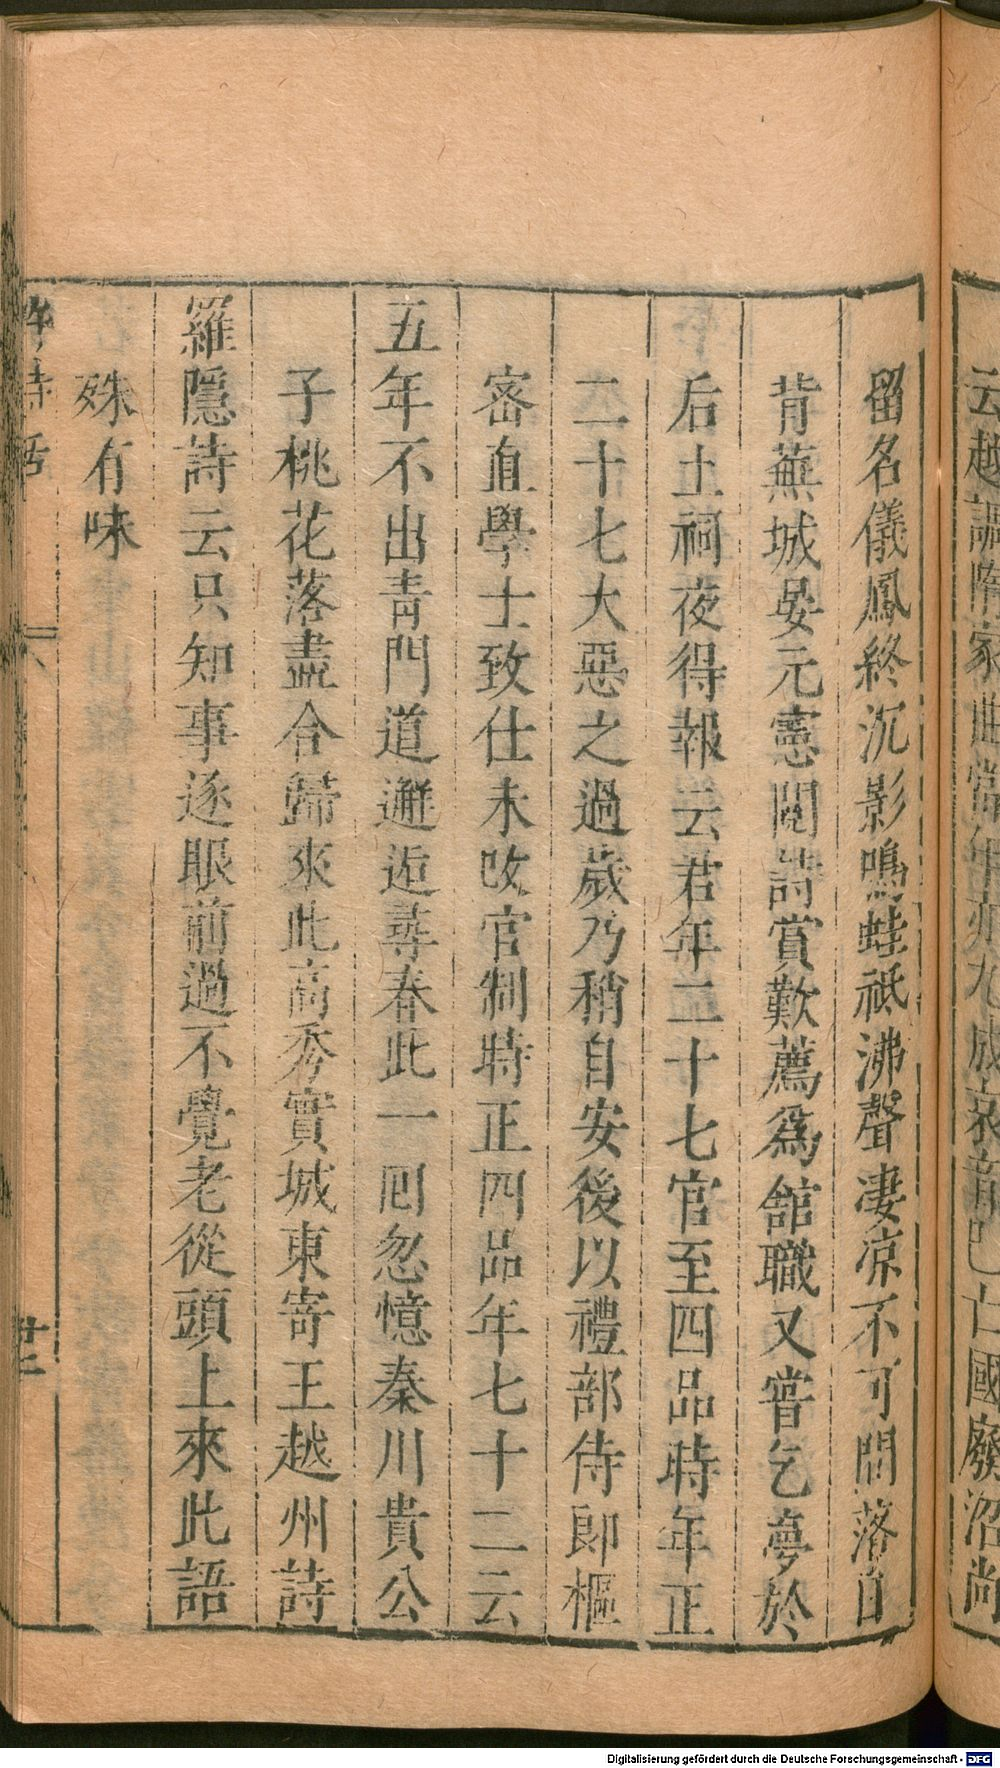 云越謳隋家曲當年亦九成哀音已亡國廢沼尚
留名儀鳳終沉影鳴蛙祗沸聲淒凉不可問落日
背蕪城晏元憲閱詩賞歎薦爲舘職又嘗乞夢於
后土祠夜得報云君年二十七官至四品時年正
二十七大惡之過歲乃稍自安後以禮部侍郎樞
密直學士致仕未改官制時正四品年七十二云
五年不出青門道邂逅尋春此一囘忽憶秦川貴公
子桃花落盡合歸來此高秀實城東寄王越州詩
羅隱詩云只知事逐眼前過不覺老從頭上來此語
殊有味
許詩話
廿二
Digitalisierung gefördert durch die Deutsche Forschungsgemeinschaft - DFG